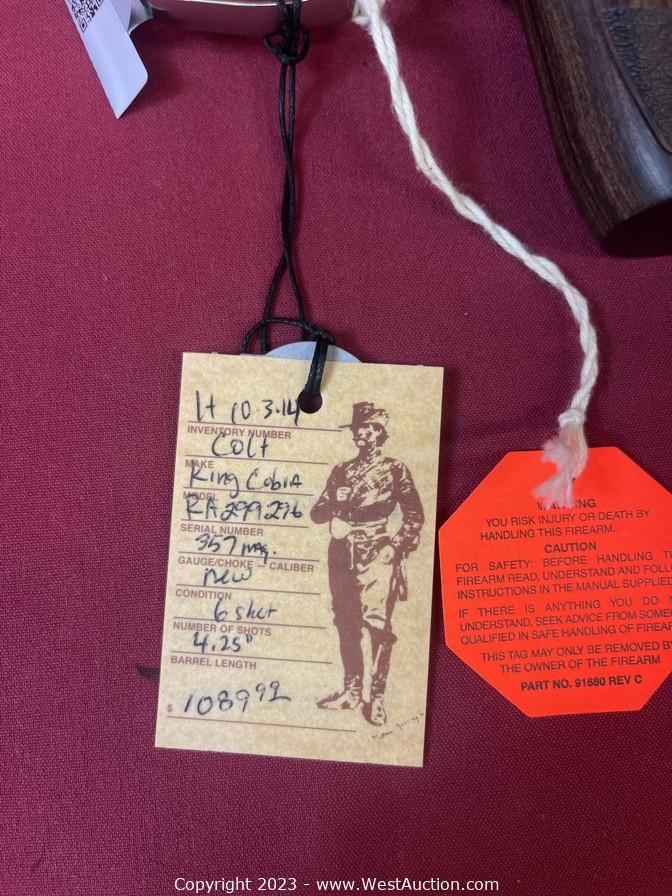 1t 10.3.14
INVENTORY NUMBER
Colt
MAKE
King Cobra
MODEL
RA299296
SERIAL NUMBER
357 mag.
GAUGE/CHOKE CALIBER
new
CONDITION
6 shot
NUMBER OF SHOTS
4.25"
BARREL LENGTH
$ 1089 92
WARNING
YOU RISK INJURY OR DEATH BY
HANDLING THIS FIREARM.
CAUTION
FOR SAFETY: BEFORE HANDLING TH
FIREARM READ, UNDERSTAND AND FOLL
INSTRUCTIONS IN THE MANUAL SUPPLIED
IF THERE IS ANYTHING YOU DO N
UNDERSTAND, SEEK ADVICE FROM SOMEO
QUALIFIED IN SAFE HANDLING OF FIREAR
THIS TAG MAY ONLY BE REMOVED BY
THE OWNER OF THE FIREARM
PART NO. 91680 REV C
Copyright 2023 - www.WestAuction.com